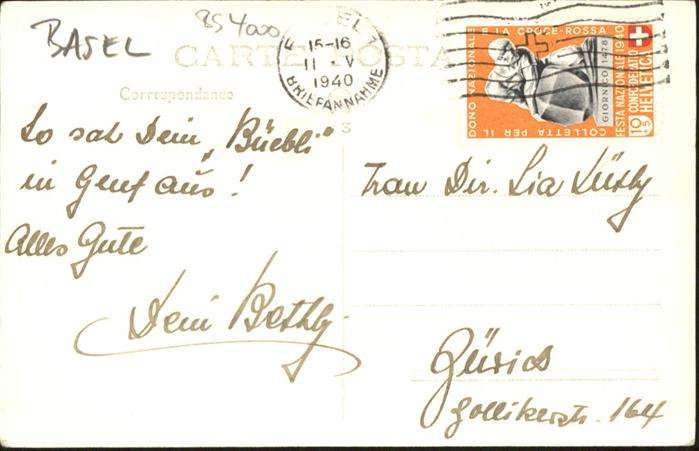 BASEL
854000
CARTE POSTA
Correspondance
BASEL 1
15-16
11 V
1940
BRIEFANNAHME
DONO NAZIONALE
E LA CROCE-ROSSA
COLLETTA PER IL
GIORNICO 1478
FESTA NAZIONALE 1940
CONFEDERATO
HELVETIA
10+5
So sah Dein „Büebli"
in Genf aus!
Alles Gute
Dein Bethly
3
Frau Dir. Lia Lüthy
Zürich
Zollikerstr. 164